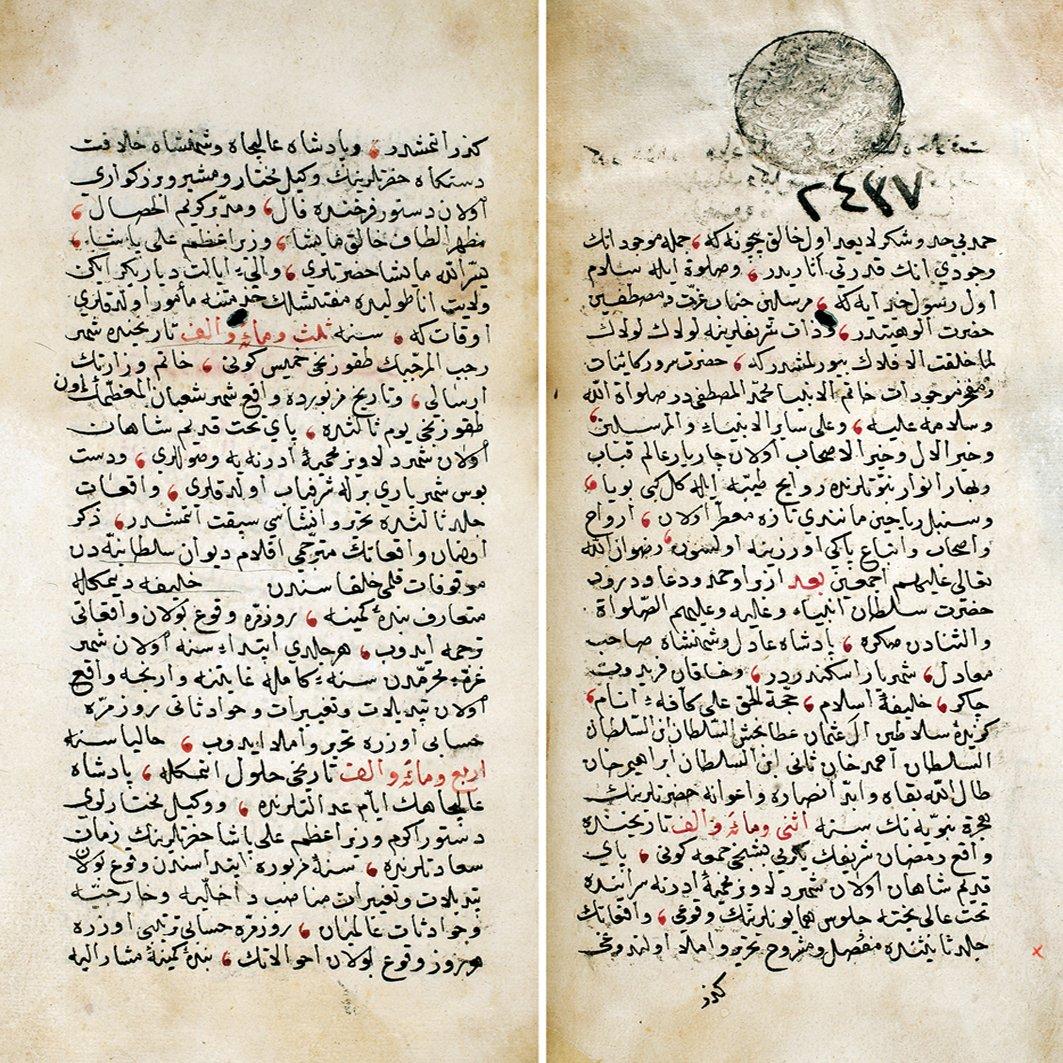 ٢٤٣٧
حمد بی حد و شکر لا یعد اول خالق بیچونه که جمله موجوداتك
وجودی انك قدرتی آثاریدر وصلوة ایله سلام
اول رسول که مرسلین
حضرت الوهیتدر وذات شریفلرینه لولاك لولاك
لما خلقت الافلاك بیورلمشدر که حضرت سرور کائنات
ومفخر موجودات خاتم الانبیا محمد المصطفی در صلواة الله
وسلامه علیه وعلی سایر الانبیاء والمرسلین
وخیر الال وخیر الاصحاب اولان چاریار عالم قباب
وبهار انوار نبوتلرنده روایح طیبه ایله کل کبی بویا
وسنبل ریاحین مانندی تازه معطر اولان ارواح
واصحاب واتباع پاکی اوزرینه اولسون رضوان الله
تعالی علیهم اجمعین بعد ازو اوحمد ودعا ودرود
حضرت سلطان انبیاء وعلیه وعلیهم الصلواة
والثنادن صکره پادشاه عادل وشهنشاه صاحب
معادل شهریار اسکندر در وخاقان فریدون
چاکر خلیفهٔ اسلام حجة الحق علی کافهٔ انام
کزیدهٔ سلاطین آل عثمان عطا بخش السلطان ابن السلطان
السلطان احمد خان ثانی ابن السلطان ابراهیم خان
طال الله بقاه وابد انصاره واعوانه حضرتلرینك
هجرة نبویه نك سنه اثنی ومائه والف تاریخنده
واقع رمضان شریفك یکرمی بشنجی جمعه کونی پای
قدیم شاهان اولان شهر دلاویز محمیهٔ ادرنه سراینده
تخت عالی بخته جلوس همایونلرینك وقوعی واقعاتك
جلد ثانیسنده مفصل ومشروح تحریر واملا اولندوغی
کذر
کذر اتمشدر وپادشاه عالیجاه وشهنشاه خلافت
دستکاه حضرتلرینك وکیل مختار ومشیر بزرکواری
اولان دستور فرخنده فال ومدبر کریم الخصال
مظهر الطاف خالق مایشا وزیر اعظم علی پاشا
یسر الله مایشا حضرتلری والیء ایالت دیاربکر ایکن
ولایت اناطولیده مفتشلك خدمتنه مأمور اولدقلری
اوقات که سنه ثلث ومائه والف تاریخنده شهر
رجب المرجبك طقوزنجی خمیس کونی خاتم وزارتك
ارسالی وتاریخ مزبورده واقع شهر شعبان المعظمك اون
طقوزنجی یوم ثالثده پای تخت قدیم شاهان
اولان شهر دلاویز محمیهٔ ادرنه یه وصوللری ودست
بوس شهریاری برله شرفیاب اولدقلری واقعات
جلد ثالثده تحریر وانشاسی سبقت اتمشدر ذکر
اولنان واقعاتك مترجمی اقلام دیوان سلطانیه دن
موقوفات قلمی خلفاسندن خلیفه دیمکله
متعارف بندهٔ کمینه روزمره وقوع بولان واقعاتی
ترجمه ایدوب هر جلدی ابتداء سنه اولان شهر
غرهٔ محرمدن سنهٔ کامله غایتنه وارنجه واقع
اولان تبدیلات وتغییرات وحوادثاتی روزمره
حسابی اوزره تحریر واملا ایدوب حالیا سنه
اربع ومائه والف تاریخی حلول اتمکله پادشاه
عالیجاهك ایام عدالتلرنده ووکیل مختارلری
دستور اکرم وزیر اعظم علی پاشا حضرتلرینك زمان
سعادتلرنده سنهٔ مزبوره ابتداسندن وقوع بولان
تبدیلات وتغییرات مناصب داخلیه وخارجیه
وحوادثات عالمیان روزمره حسابی ترتیبی اوزره
هر روز وقوع بولان احوالاتك بندهٔ کمینهٔ مشارالیه